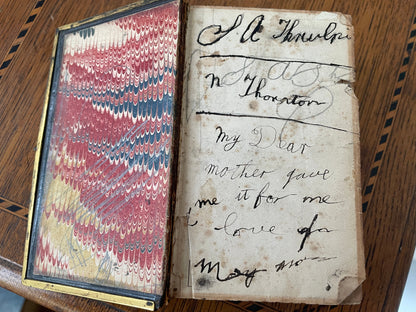 S A
n Thornton
My Dear
mother gave
me it for me
love for
May